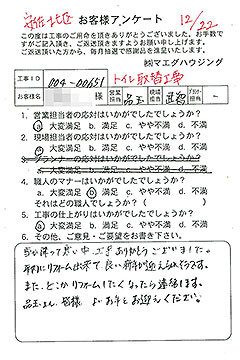 お客様アンケート 12/22
この度は工事のご用命を頂きありがとうございました。お手数で
すがご記入頂き、ご返送頂きますようお願い申し上げます。
ご返送頂いた方から、毎月抽選で感謝品を進呈いたします。
㈱マエダハウジング
工事ID 004-00651 トイレ取替工事
お客様名 営業担当 現場担当 プランナー担当
1. 営業担当者の応対はいかがでしたでしょうか?
a. 大変満足 b. 満足 c. やや不満 d. 不満
2. 現場担当者の応対はいかがでしたでしょうか?
a. 大変満足 b. 満足 c. やや不満 d. 不満
3. プランナーの応対はいかがでしたでしょうか?
a. 大変満足 b. 満足 c. やや不満 d. 不満
4. 職人のマナーはいかがでしたでしょうか?
a. 大変満足 b. 満足 c. やや不満 d. 不満
それはどの職人でしょうか? ( )
5. 工事の仕上がりはいかがでしたでしょうか?
a. 大変満足 b. 満足 c. やや不満 d. 不満
6. その他、ご意見・ご要望をお書き下さい。
寒い中 工事 ありがとうございました。
年内にリフォーム出来て良い新年が迎えられそうです。
また、どこかリフォームしたくなったら連絡します。
皆様 よいお年をお迎えください。